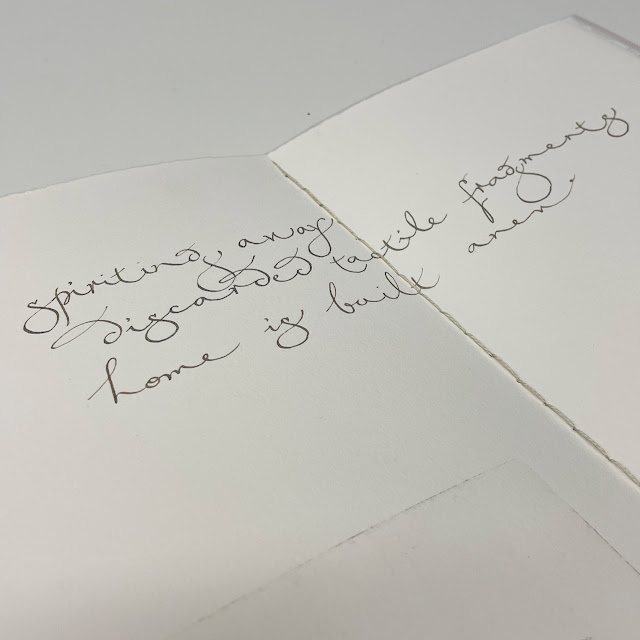 spiriting away
discarded tactile fragments
home is built anew.